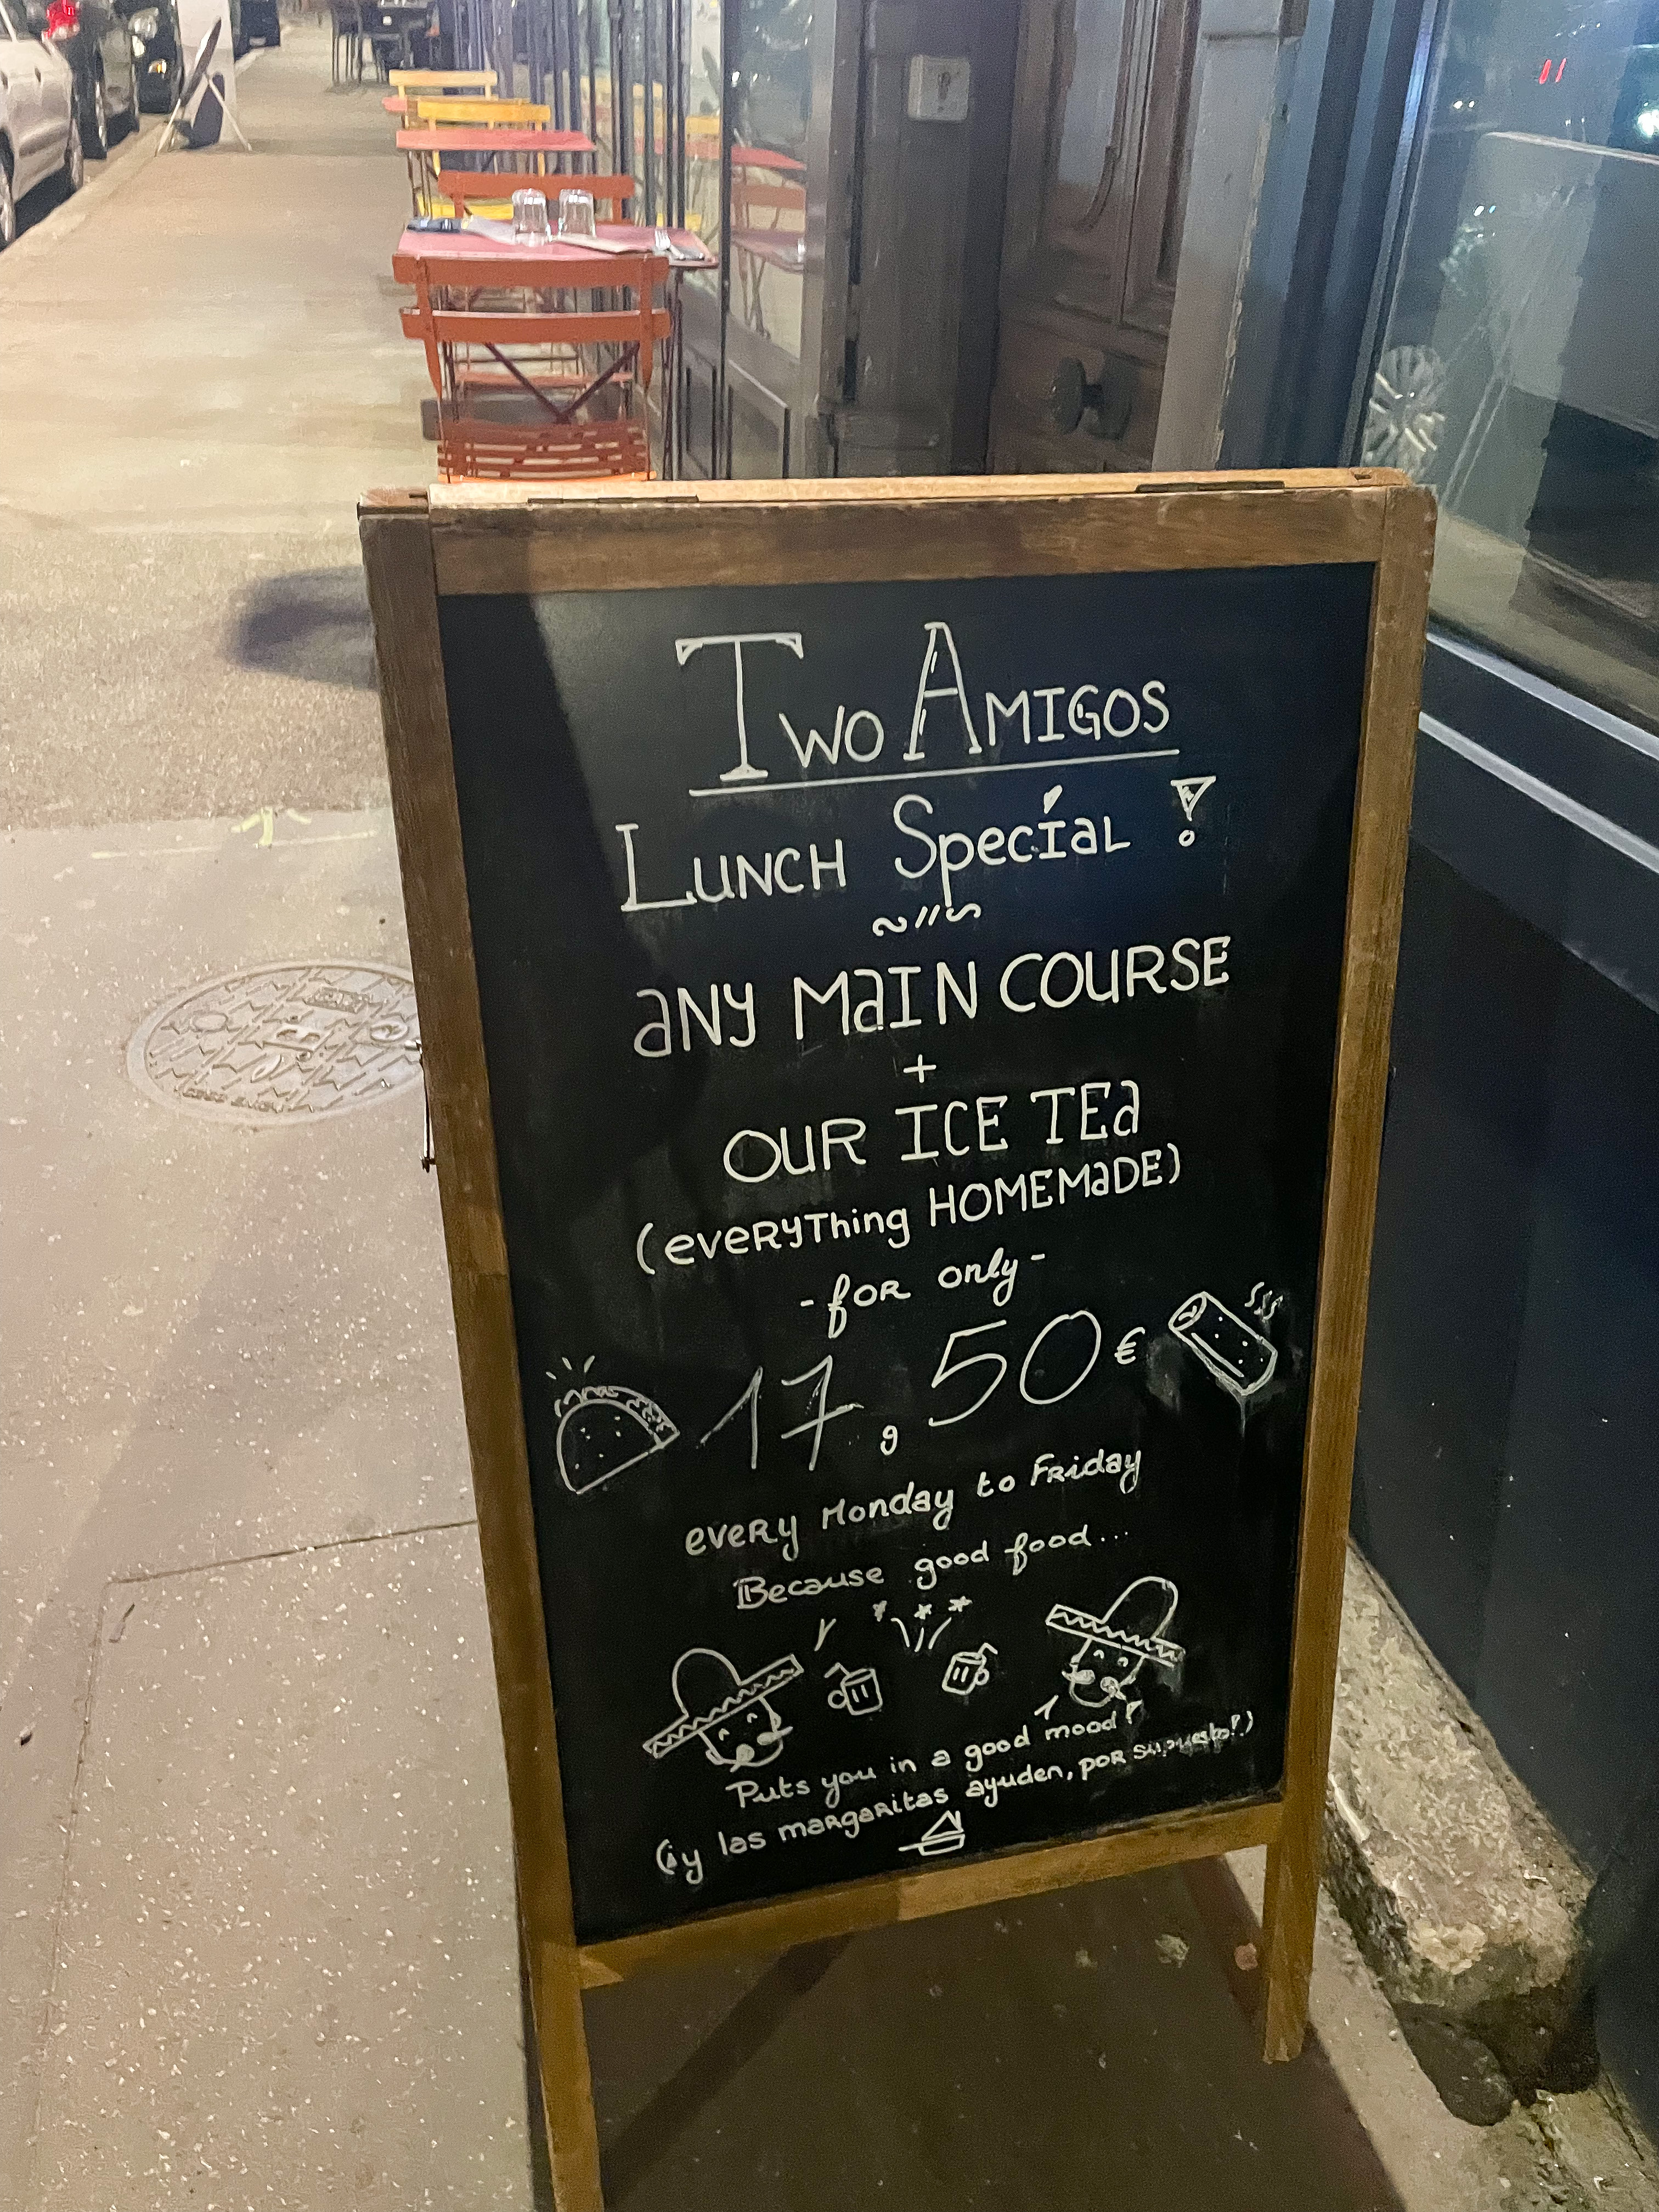 Two Amigos
Lunch Special !
any main course
+
our ice tea
(everything HOMEMADE)
- for only -
17,50€
every Monday to Friday
Because good food...
Puts you in a good mood!
(¡y las margaritas ayuden, por supuesto!)